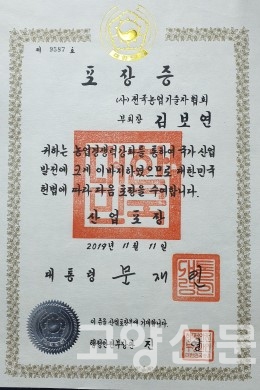 제 9587 호
포장증
(사)전국농업기술자협회
부회장 김보연
귀하는 농업경쟁력강화를 통하여 국가 산업
발전에 크게 이바지하였으므로 대한민국
헌법에 따라 다음 포장을 수여합니다.
산업포장
2019년 11월 11일
대통령 문재인
이 증을 산업포장부에 기재합니다.
행정안전부장관 진영
고양신문